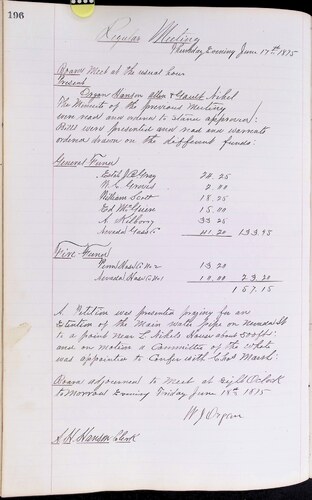 196
Regular Meeting
Thursday Evening June 17th 1875
Board Meet at the usual hour
Present
Organ Hansen Allen & Gault Nihel
The Minutes of the previous Meeting
were read and orderd to stand approved/:
Bills were presented and read and warrants
orderd drawn on the different funds:
General Fund
Estel J B Gray 24.25
N. C. Groves 2.00
William Scott 18.25
Ed McGuien 15.00
A. Kilborg 33.25
Nevada Gas Co 41.20 133.95
Fire Fund
Penn Hose Co No 2 13.20
Nevada Hose Co No 1 10.00 23.20
157.15
A Petition was presented praying for an
extention of the Main water pipe on Nevada St
to a point near L Nichols House about 500 feet:
and on motion a Committee of the whole
was appointed to confer with Chas Marsh:
Board adjourned to meet at eight Oclock
tomorrow Evening Friday June 18th 1875
W J Organ
S. H. Hanson Clerk